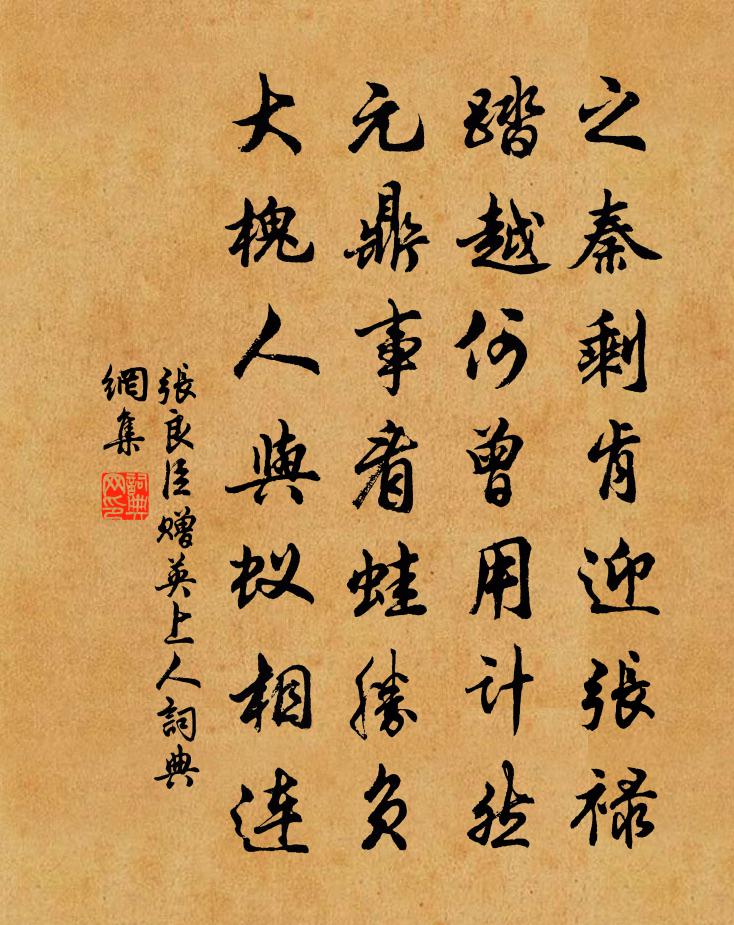 之秦剩肯迎張禄
踏越何曾用計然
元鼎事看蛙勝負
大槐人與蚁相連
張良臣赠英上人詞典
網集
詞典
网印